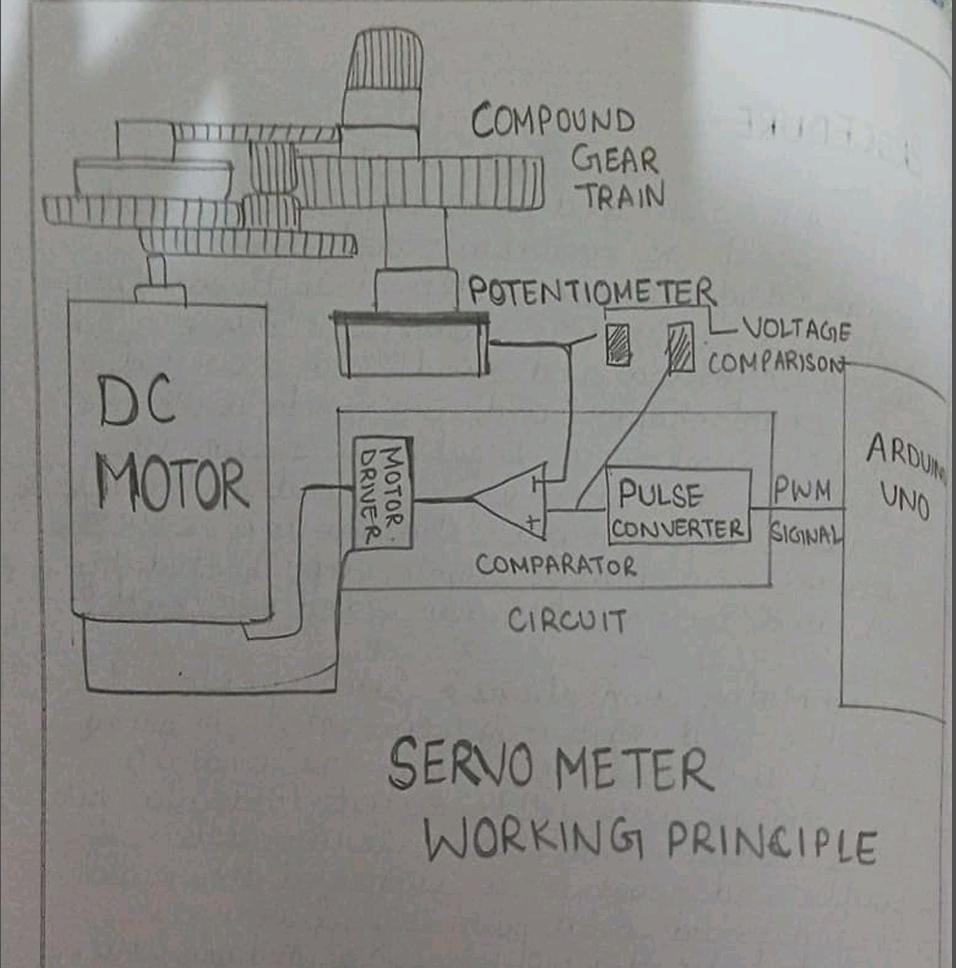 COMPOUND
GEAR
TRAIN
POTENTIOMETER
VOLTAGE
COMPARISON
DC
MOTOR
MOTOR
DRIVER
-
+
PULSE
CONVERTER
PWM
SIGNAL
ARDUIN
UNO
COMPARATOR
CIRCUIT
SERVO METER
WORKING PRINCIPLE